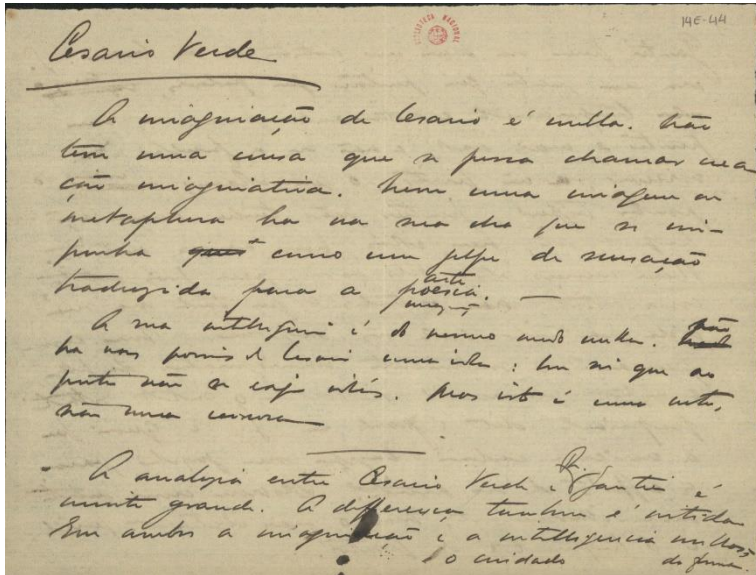 BIBLIOTECA NACIONAL
14E-44
Cesario Verde
A imaginação de Cesario é nulla. Não
tem uma cousa que se possa chamar crea-
ção imaginativa. Nem uma imagem ou
metaphora ha na sua obra que se im-
ponha como um golpe de sensação
traduzida para a poesia.
arte
A sua intelligencia é do mesmo modo nulla. Não
ha nos poemas de Cesario uma idéa: bem sei que ao
poeta não se exige idéas. Mas isto é uma nota,
não uma censura
A analogia entre Cesario Verde e Gautier é
muito grande. A differença tambem é nitida.
Em ambos a imaginação e a intelligencia nullas;
o cuidado da forma.